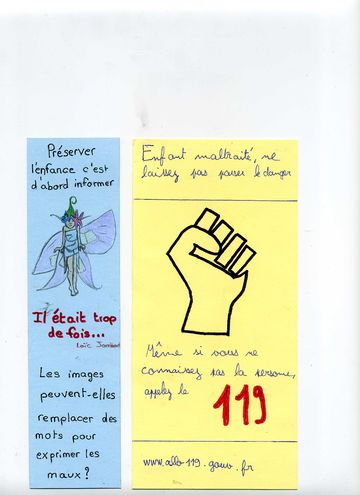 Préserver
l'enfance c'est
d'abord informer
Il était trop
de fois...
Loïc Jombart
Les images
peuvent-elles
remplacer des
mots pour
exprimer les
maux?
Enfant maltraité, ne
laissez pas passer le danger
Même si vous ne
connaissez pas la personne,
appelez le 119
www.allo119.gouv.fr